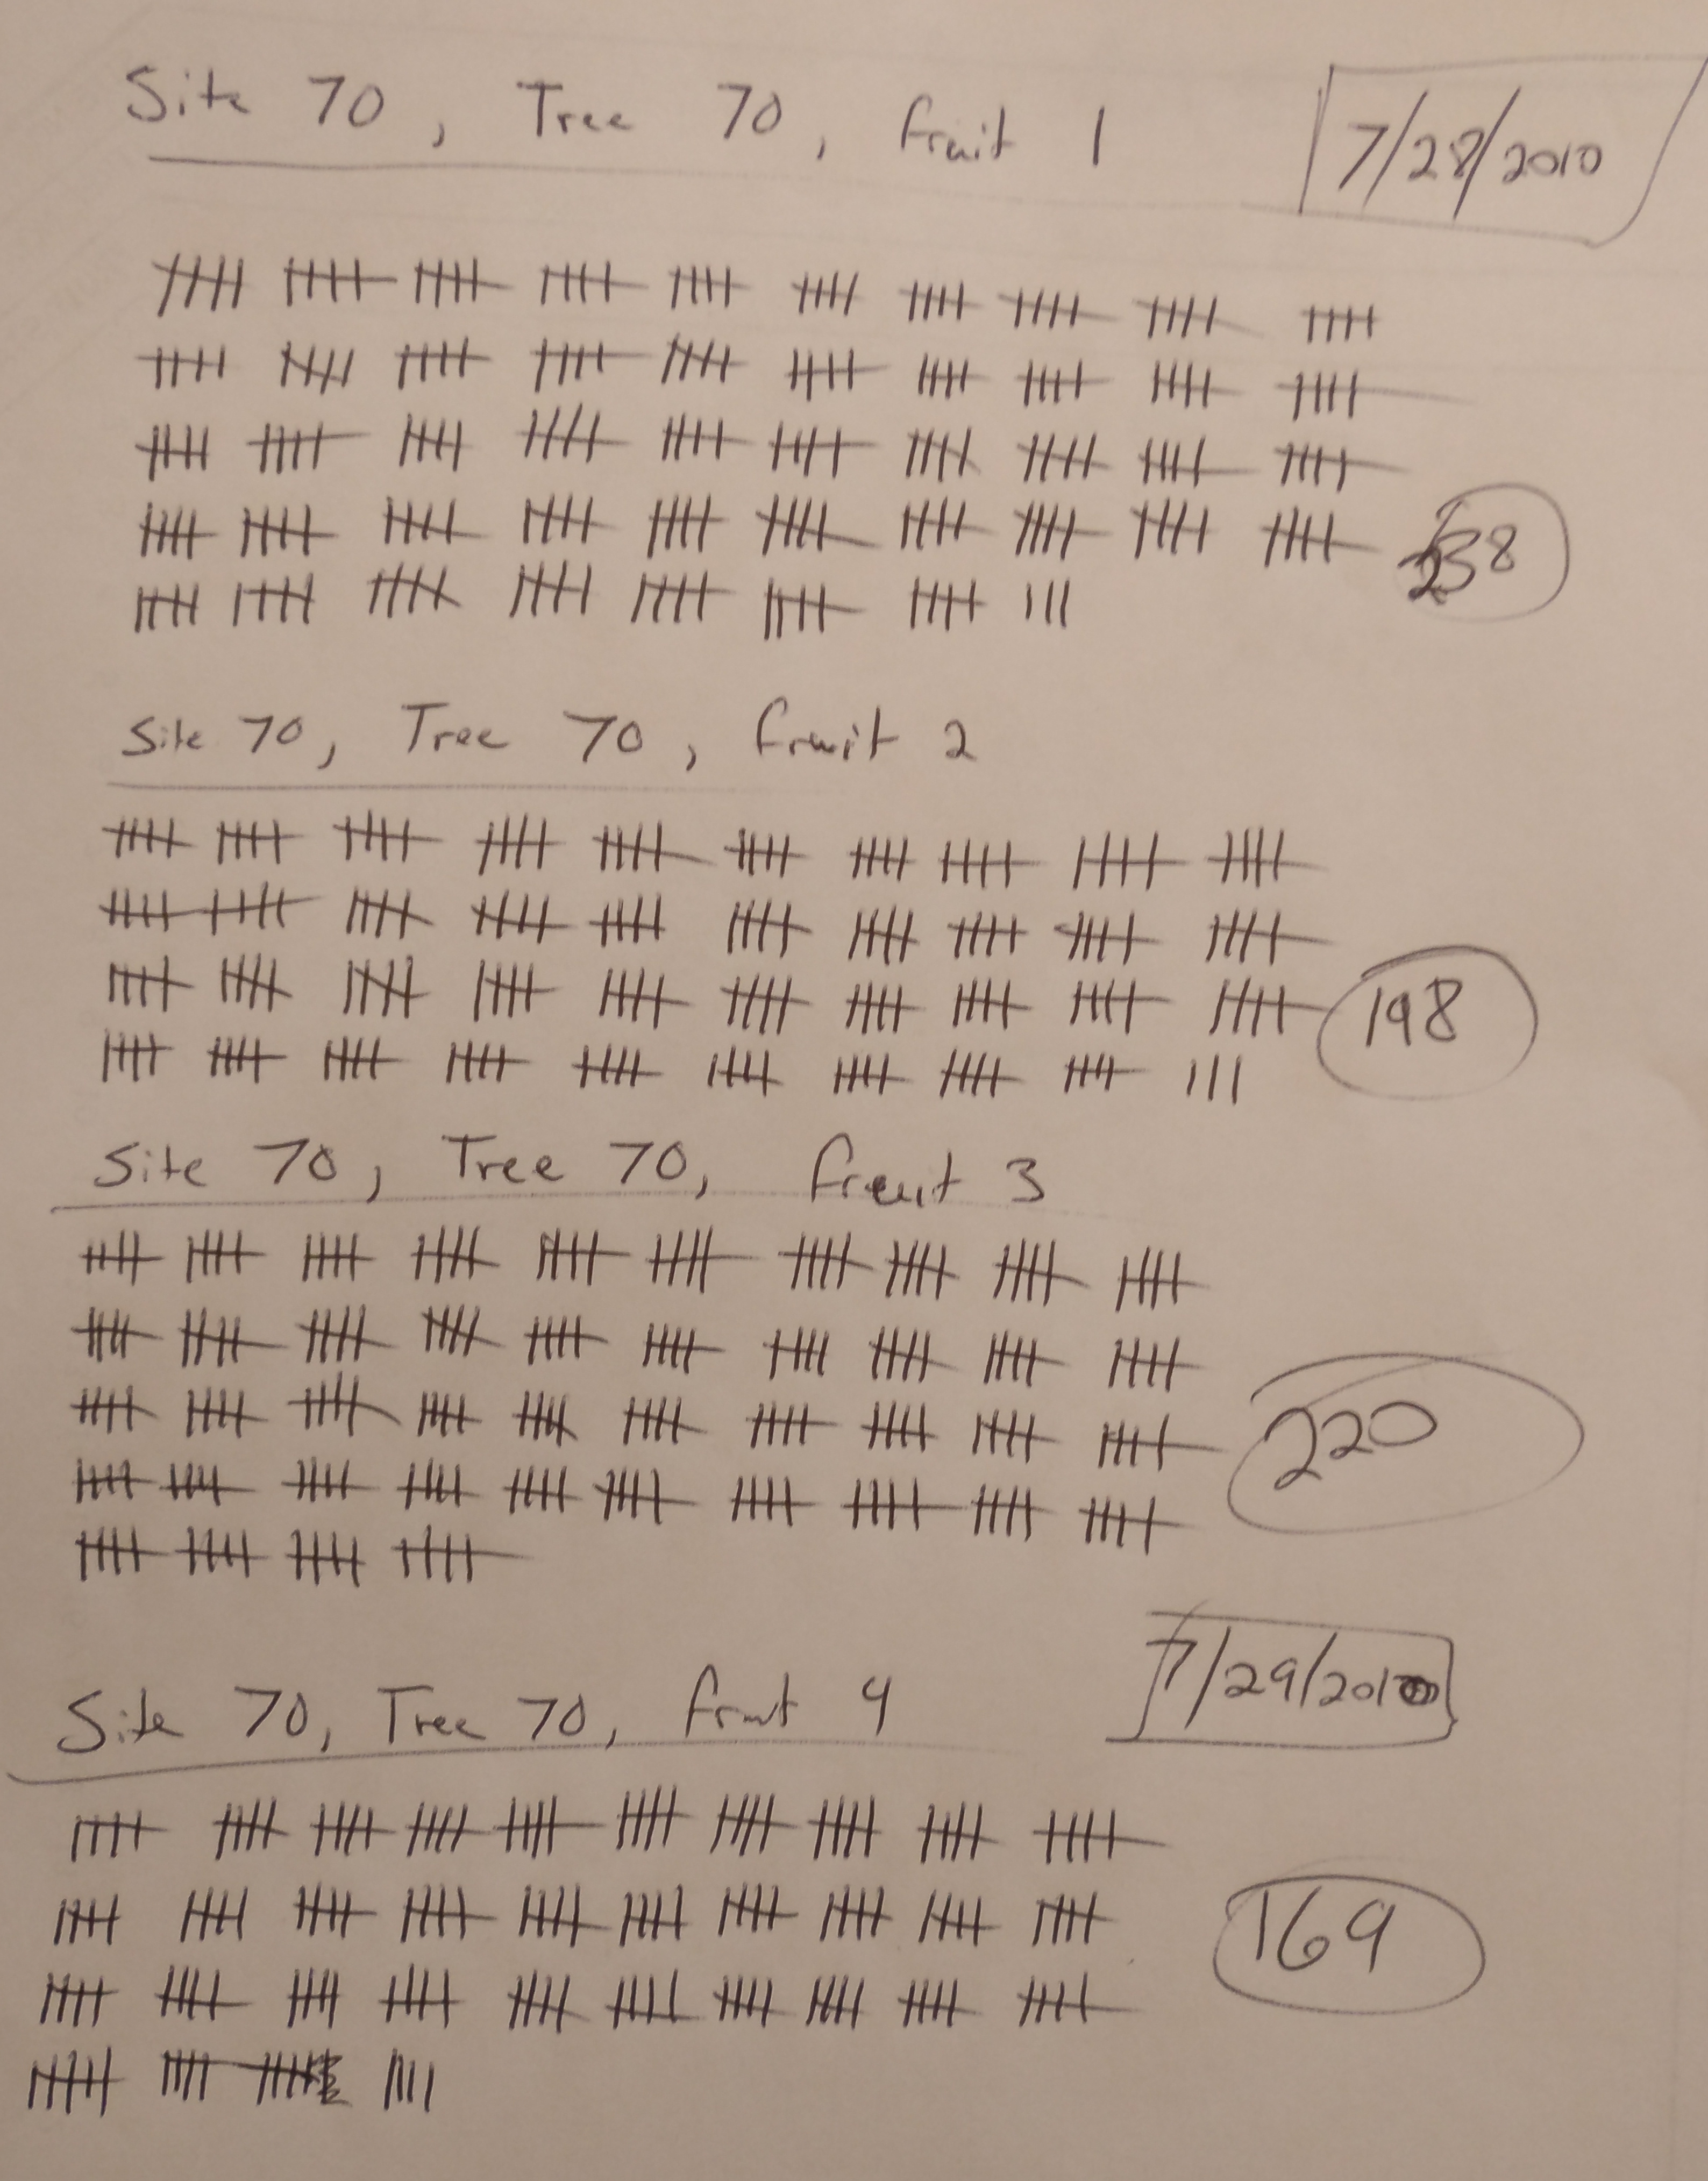 Site 70, Tree 70, fruit 1
7/28/2010
238
Site 70, Tree 70, fruit 2
198
Site 70, Tree 70, fruit 3
220
7/29/2010
Site 70, Tree 70, fruit 4
169